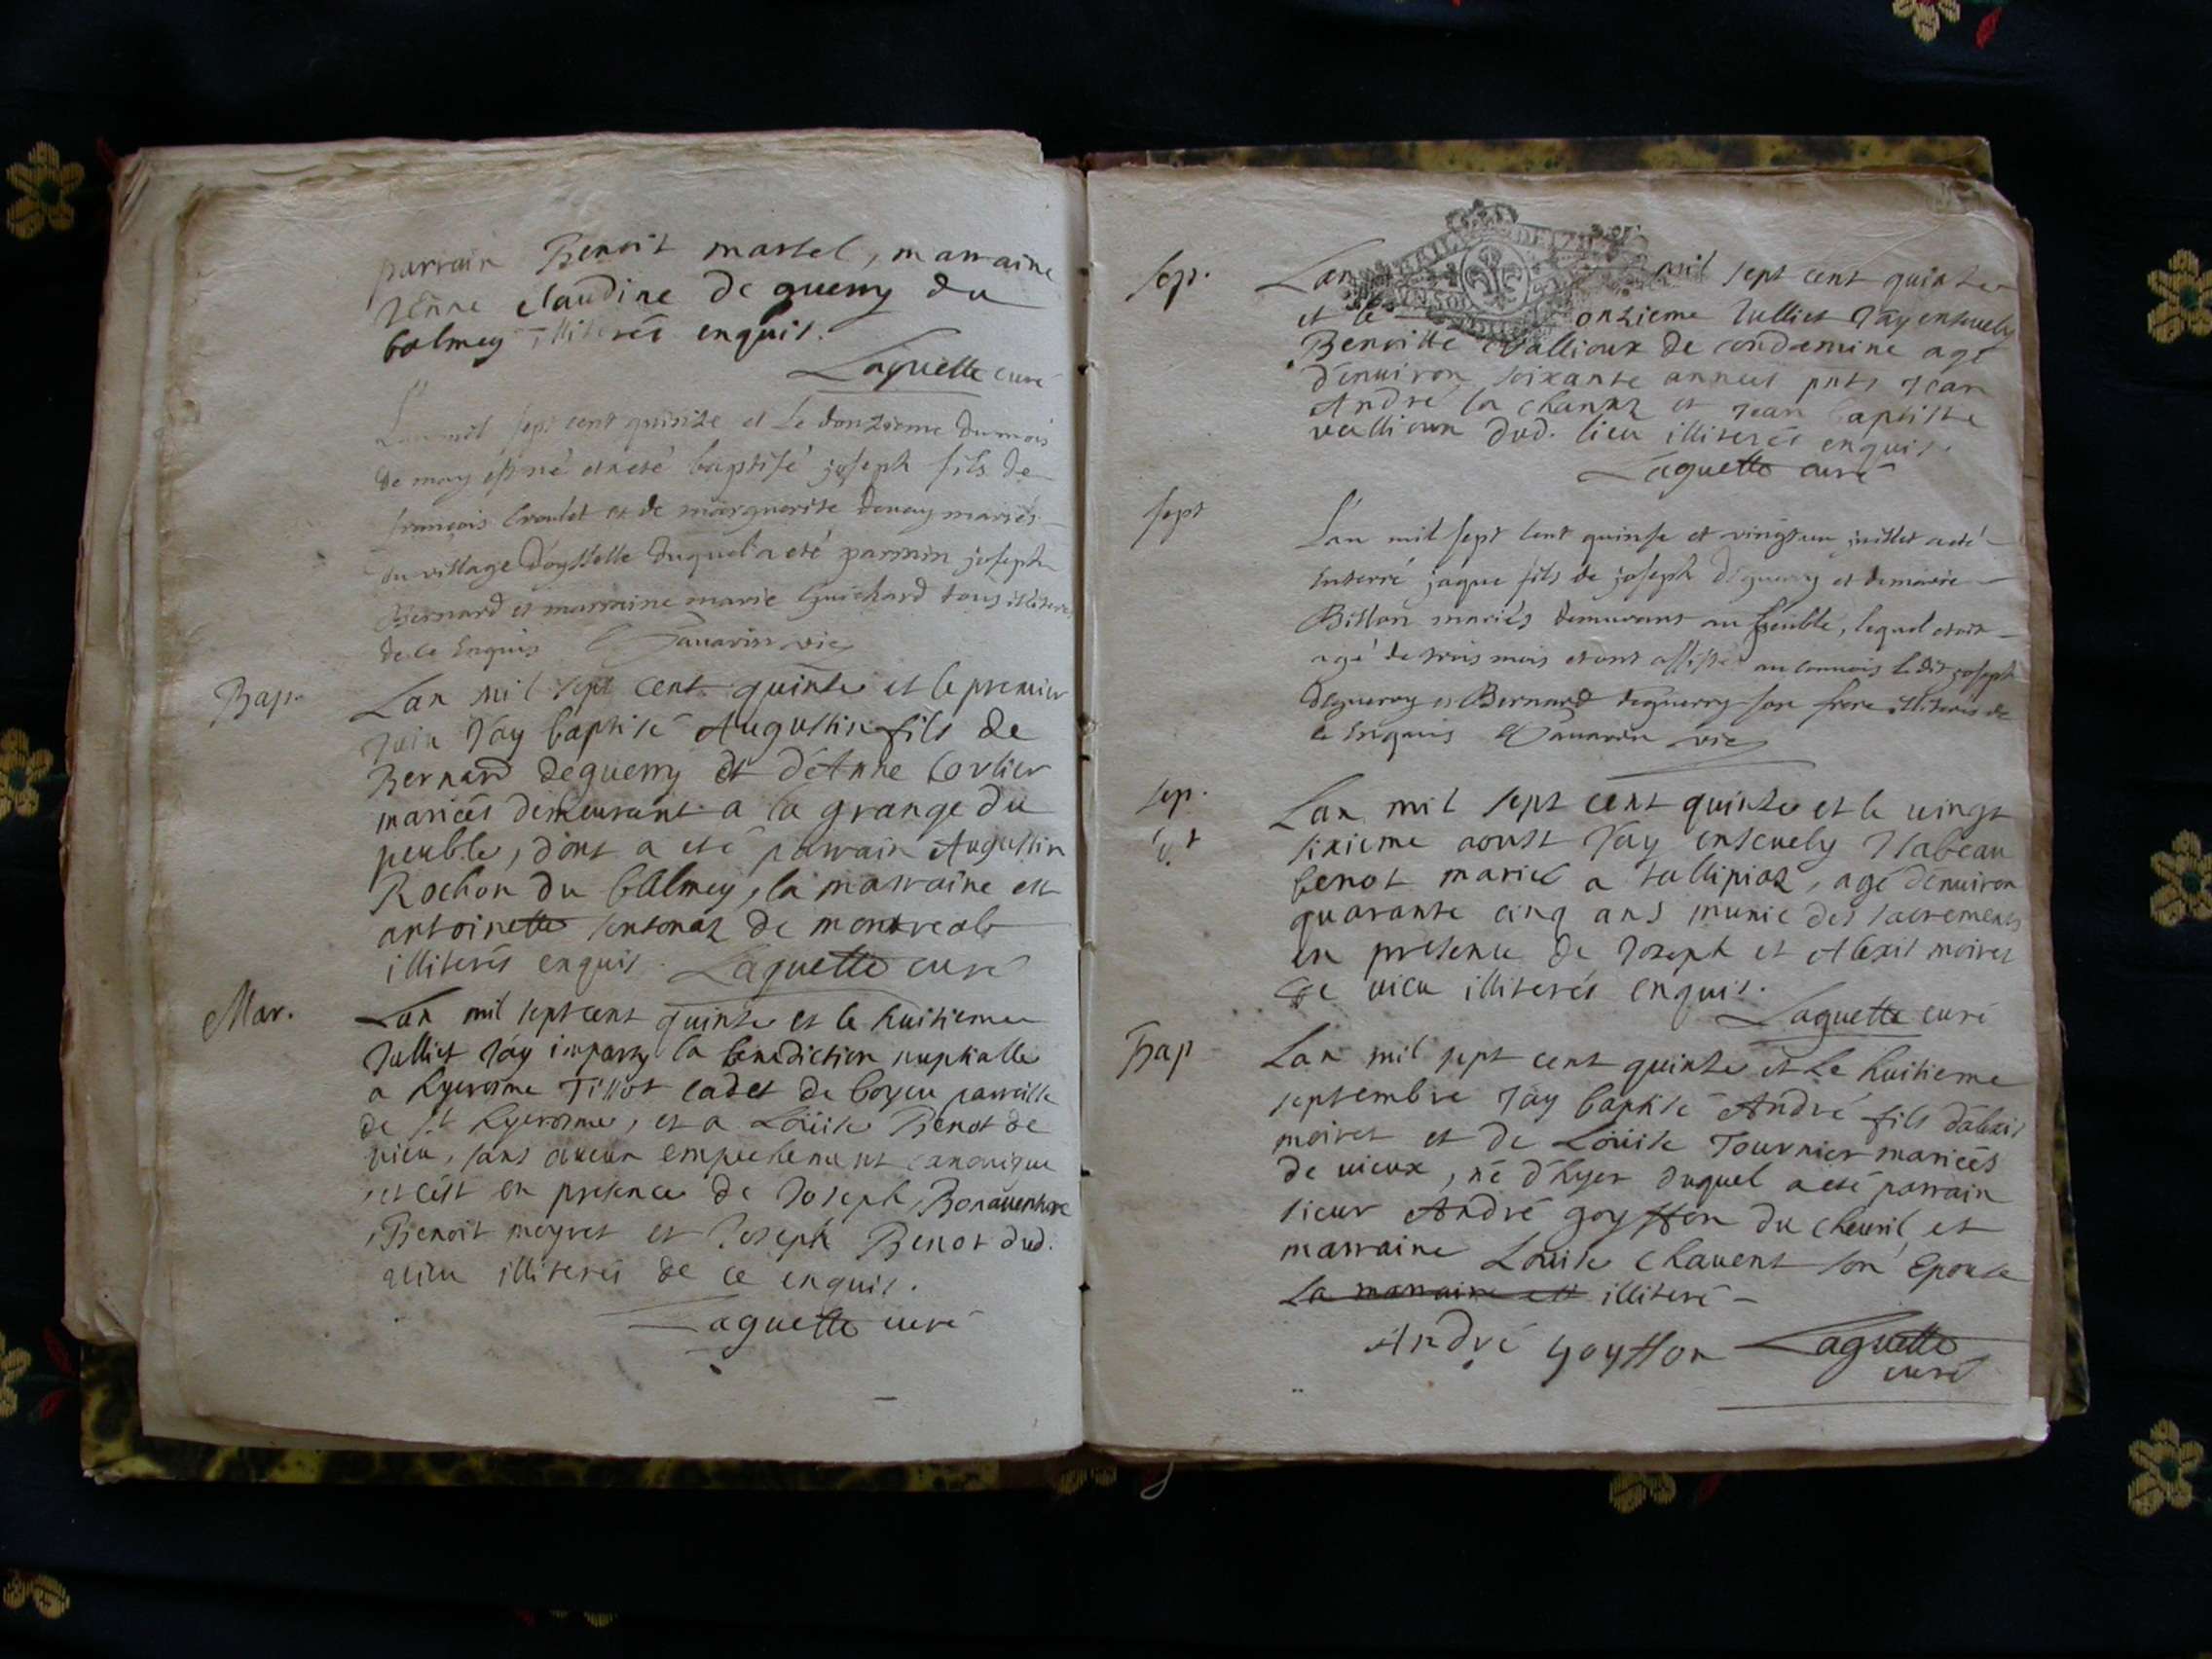 parrain Benoit martel, marraine
claudine deguerry du
balmey illiterés enquis.
Laguette curé
L'an mil sept cent quinze et le douzieme du mois
de may est né et a eté baptisé joseph fils de
françois et de marguerite mariés
du village d'oysselle duquel a eté parrain joseph
Bernard et marraine marie Guichard tous illiteres
de ce Enquis Savarin vic
Bap.
Lan mil sept cent quinze et le premier
Juin Jay baptisé Augustin fils de
Bernard deguerry et d'Anne Corlier
mariées demeurant a la grange du
peuble, dont a eté parrain Augustin
Rochon du balmey, la marraine est
antoinette sontonaz de montreal
illiterés enquis. Laguette curé
Mar.
Lan mil sept cent quinze et le huitieme
Julliet Jay imparty la benediction nuptialle
a hyerosme Tissot cadet de boyeu parroisse
de St hyerosme, et a Loüise Benot de
vieu, sans aucun empechement canonique
et cest en presence de Joseph Bonaventure
Benoit moyret et Joseph Benot dud.
vieu illiterés de ce enquis.
Laguette curé
Sep.
Lan mil sept cent quinze
et le onzieme Julliet Jay ensevely
Benoitte vallioux de condamine agé
d'environ soixante années pnts Jean
André la chanaz et Jean baptiste
vallioux dud. lieu illiterés enquis.
Laguette curé
Sept
L'an mil sept cent quinse et vingt un juillet a eté
Enterré jaque fils de joseph deguerry et de marie
Billon mariés demurans au peuble, lequel etoit
agé de trois mois et ont assisté au convois ledit joseph
deguerry et Bernard deguerry son frere illiterés de
ce Enquis Savarin vic
Sep.
Lan mil sept cent quinze et le vingt
sixieme aoust Jay ensevely Isabeau
benot mariée a tallipiaz, agé denviron
quarante cinq ans munie des sacrements
en presence de Joseph et Alexis moiret
de vieu illiterés enquis.
Laguette curé
Bap
Lan mil sept cent quinze et le huitieme
septembre Jay baptisé André fils dalexis
moiret et de Loüise Tournier mariées
de vieux, né d'hyer duquel a eté parrain
sieur André goyffon du chevril et
marraine Louise chavent son Epouse
La marraine est illiteré
André goyffon Laguette
curé